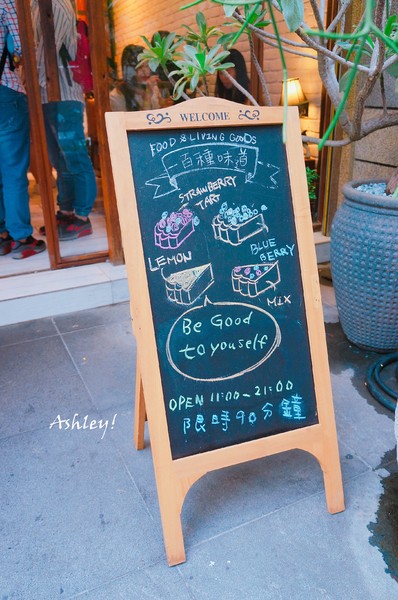 WELCOME
FOOD & LIVING GOODS
百種味道
STRAWBERRY
TART
LEMON
BLUE
BERRY
MIX
Be Good
to youself
OPEN 11:00~21:00
限時90分鐘
Ashley!